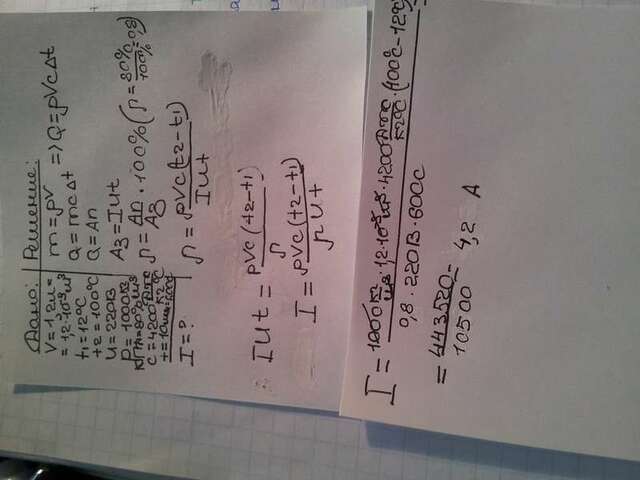 Дано:
V=1,2л=
=1,2·10⁻³м³
t₁=12°C
t2=100°C
U=220В
ρ=1000кг/м³
КПД=80%
c=4200Дж/кг°C
t=10мин=600с
I=?
Решение:
m=ρV
Q=mcΔt => Q=ρVcΔt
Q=Aп
Aз=IUt
η=Aп/Aз·100% (η=80%/100%=0,8)
η=ρVc(t2-t1)/IUt
IUt=ρVc(t2-t1)/η
I=ρVc(t2-t1)/ηUt
I=1000кг/м³·1,2·10⁻³м³·4200Дж/кг°C·(100°C-12°C)/0,8·220В·600С
=443520/10500=4,2 A